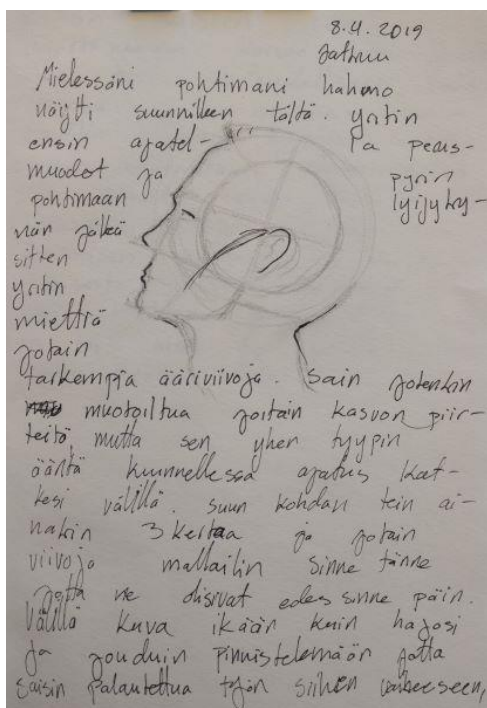 8.4.2019
Jatkuu
Mielessäni pohtimani hahmo
näytti suunnilleen tältä. yritin
ensin ajatel- la perus-
muodot ja pyrin
pohtimaan lyijyky-
nän jälkeä
sitten
yritin
miettiä
jotain
tarkempia ääriviivoja. Sain jotenkin
muotoiltua joitain kasvon piir-
teitä, mutta sen yhen tyypin
ääntä kuunnellessa ajatus kat-
kesi välillä. suun kohdan tein ai-
nakin 3 kertaa ja jotain
viivoja mallailin sinne tänne
jotta ne olisivat edes sinne päin.
Välillä kuva ikään kuin hajosi
ja jouduin pinnistelemään jotta
saisin palautettua työn siihen vaiheeseen,